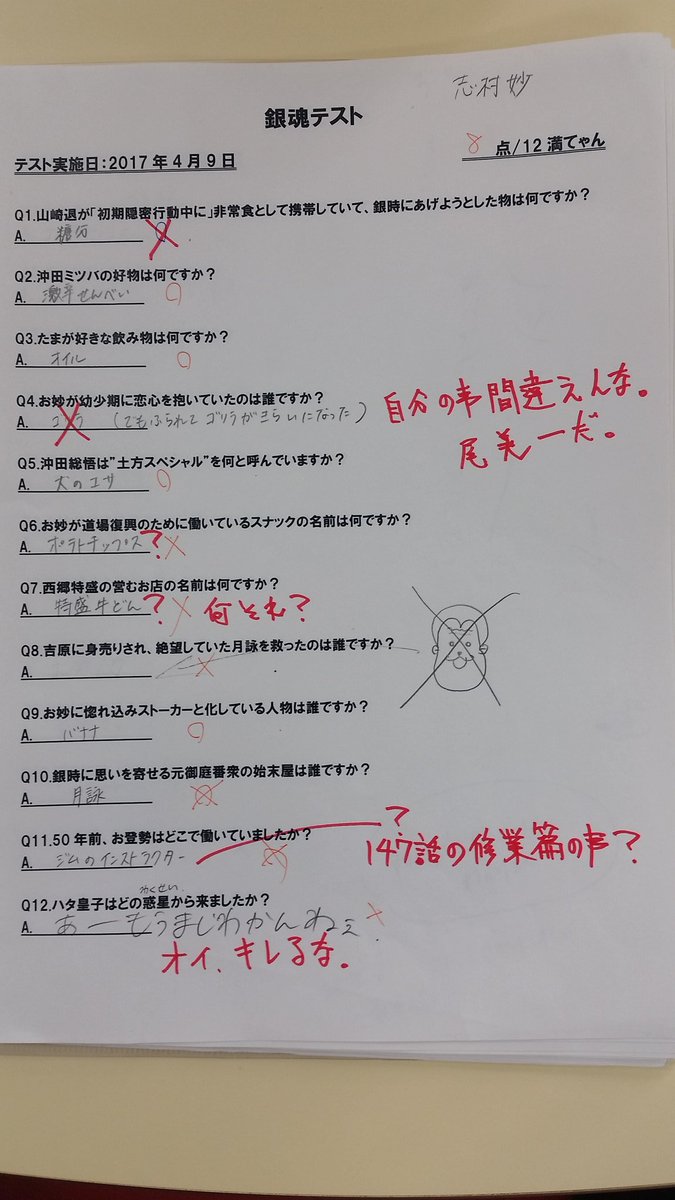 志村妙
銀魂テスト
テスト実施日：2017年4月9日
8 点/12 満てゃん
Q1.山崎退が「初期隠密行動中に」非常食として携帯していて、銀時にあげようとした物は何ですか？
A. 糖分
Q2.沖田ミツバの好物は何ですか？
A. 激辛せんべい
Q3.たまが好きな飲み物は何ですか？
A. オイル
Q4.お妙が幼少期に恋心を抱いていたのは誰ですか？
A. ゴリラ （でもふられてゴリラがきらいになった）
自分の事間違えんな。
尾美一だ。
Q5.沖田総悟は”土方スペシャル”を何と呼んでいますか？
A. 犬のエサ
Q6.お妙が道場復興のために働いているスナックの名前は何ですか？
A. ポテトチップス ？
Q7.西郷特盛の営むお店の名前は何ですか？
A. 特盛牛どん ？ 何それ？
Q8.吉原に身売りされ、絶望していた月詠を救ったのは誰ですか？
A.
Q9.お妙に惚れ込みストーカーと化している人物は誰ですか？
A. バナナ
Q10.銀時に思いを寄せる元御庭番衆の始末屋は誰ですか？
A. 月詠
Q11.50 年前、お登勢はどこで働いていましたか？
A. ジムのインストラクター
？
147話の修業篇の事？
わくせい
Q12.ハタ皇子はどの惑星から来ましたか？
A. あーもうまじわかんねぇ
オイ、キレるな。